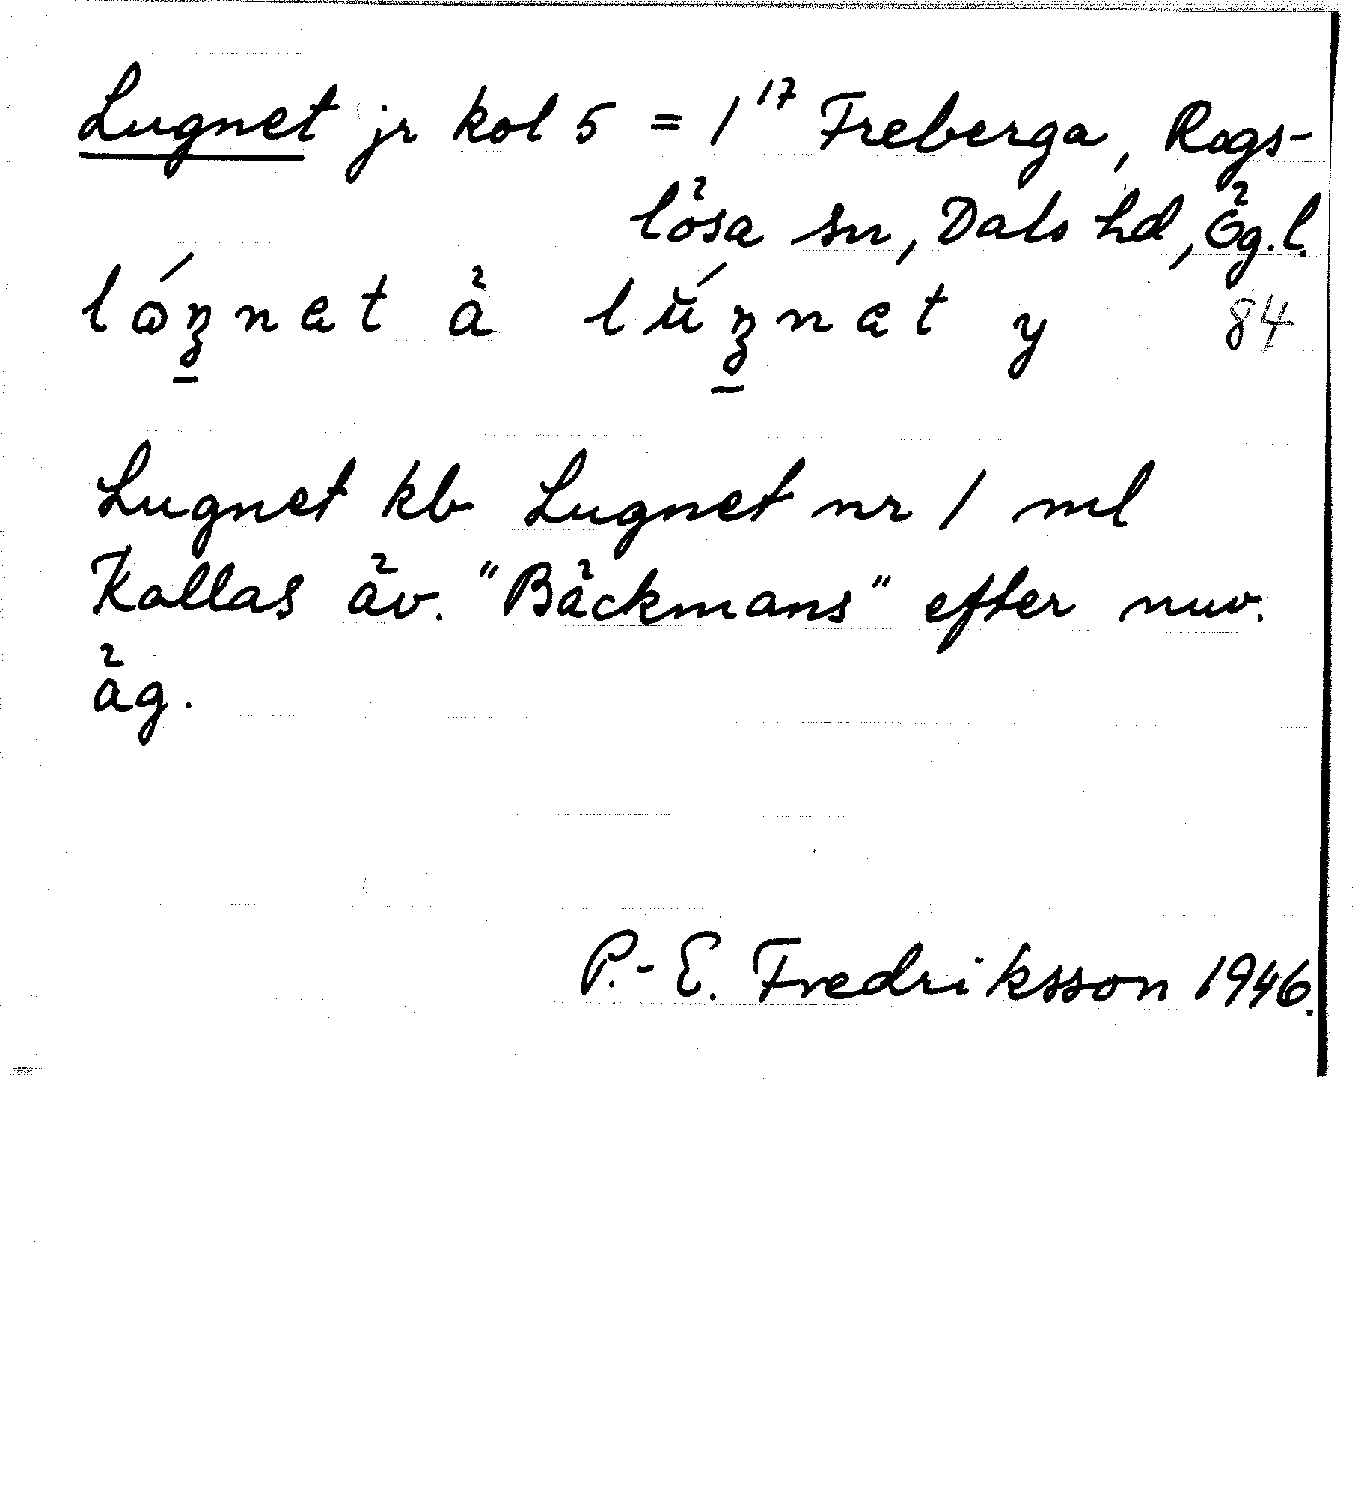 Lugnet jr kol 5 = 1¹⁷ Freberga, Rogs-
lösa sn, Dals hd, Ög.l.
84
Lugnet kb Lugnet nr 1 ml
Kallas äv. "Bäckmans" efter nuv.
äg.
P.-E. Fredriksson 1946.